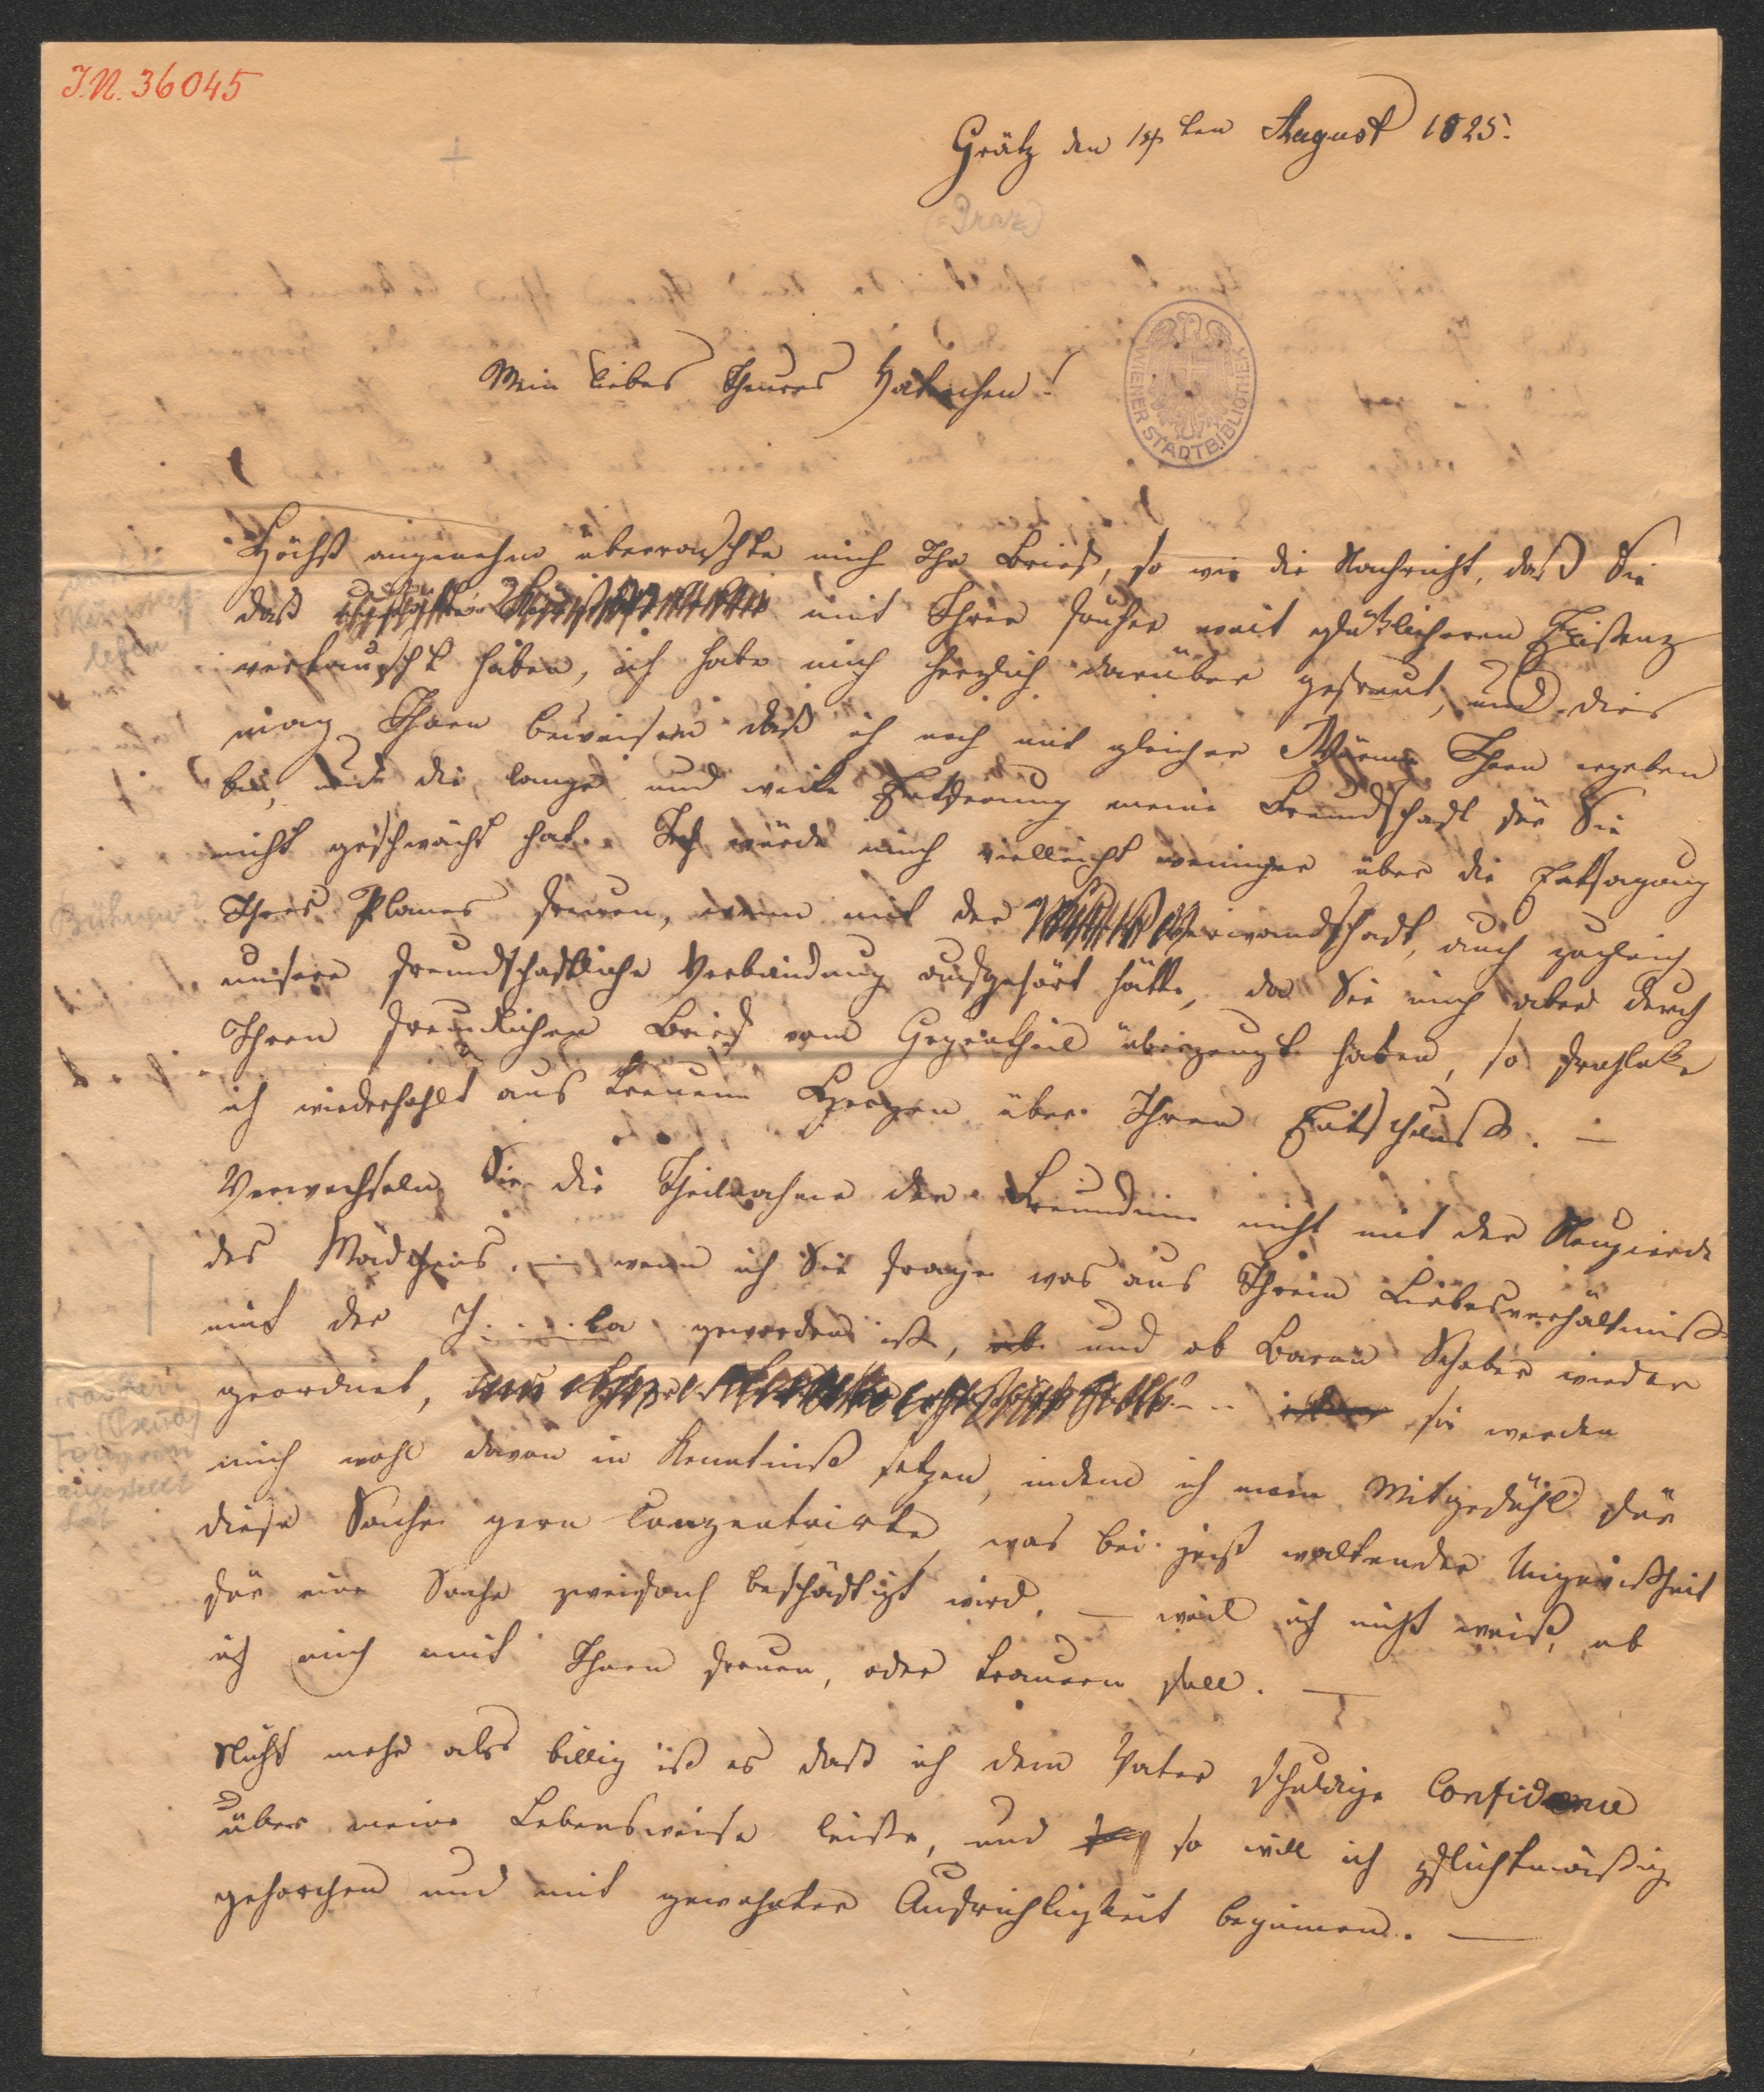 I.N. 36045
Grätz den 14ten August 1825.
(= Graz)
Mein liebes theures Vaterchen!
WIENER STADTBIBLIOTHEK
Höchst angenehm überraschte mich Ihr Brief, so wie die Nachricht, daß Sie
daß mit Ihrer früher weit glücklicheren Existenz
vertauscht haben, ich habe mich herzlich darüber gefreut, und dies
mag Ihnen beweisen daß ich noch mit gleicher Wärme Ihnen ergeben
bin, und die lange und weite Entfernung meine Freundschaft für Sie
nicht geschwächt hat. Ich würde mich vielleicht weniger über die Entsagung
Ihres Planes freuen, wenn mit der Verwandschaft, auch zugleich
unsere freundschaftliche Verbindung aufgehört hätte, da Sie mich aber durch
Ihren freundlichen Brief vom Gegentheil überzeugt haben, so frohlocke
ich wiederhohlt aus treuem Herzen über Ihren Entschluß. —
Verwechseln Sie die Theilnahme der Freundinn nicht mit der Neugierde
des Mädchens, — wenn ich Sie frage was aus Ihrem Liebesverhältniß
mit der J....ta geworden ist, ob und ob Baron Schober wieder
geordnet, Sie werden
mich wohl davon in Kenntniß setzen, indem ich mein Mitgefühl für
diese Sache gern conzentrirte, was bei jetzt waltender Ungewißheit
für eine Sache zweifach beschäftigt wird, — weil ich nicht weiß, ob
ich mich mit Ihnen freuen, oder trauern soll. —
Nicht mehr als billig ist es daß ich dem Vater schuldige Confidence
über meine Lebensweise leiste, und so will ich pflichtmäßig
gehorchen und mit gewohnter Aufrichtigkeit beginnen. —
Künstler-
leben
Bühnen?
(Pseud)
angestellt
hat